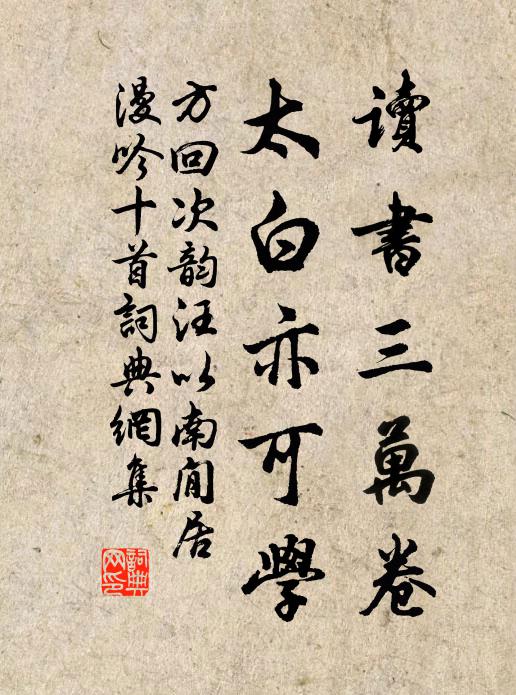 讀書三萬卷
太白亦可學
方回次韵汪以南閒居
漫吟十首詞典網集
詞典网印